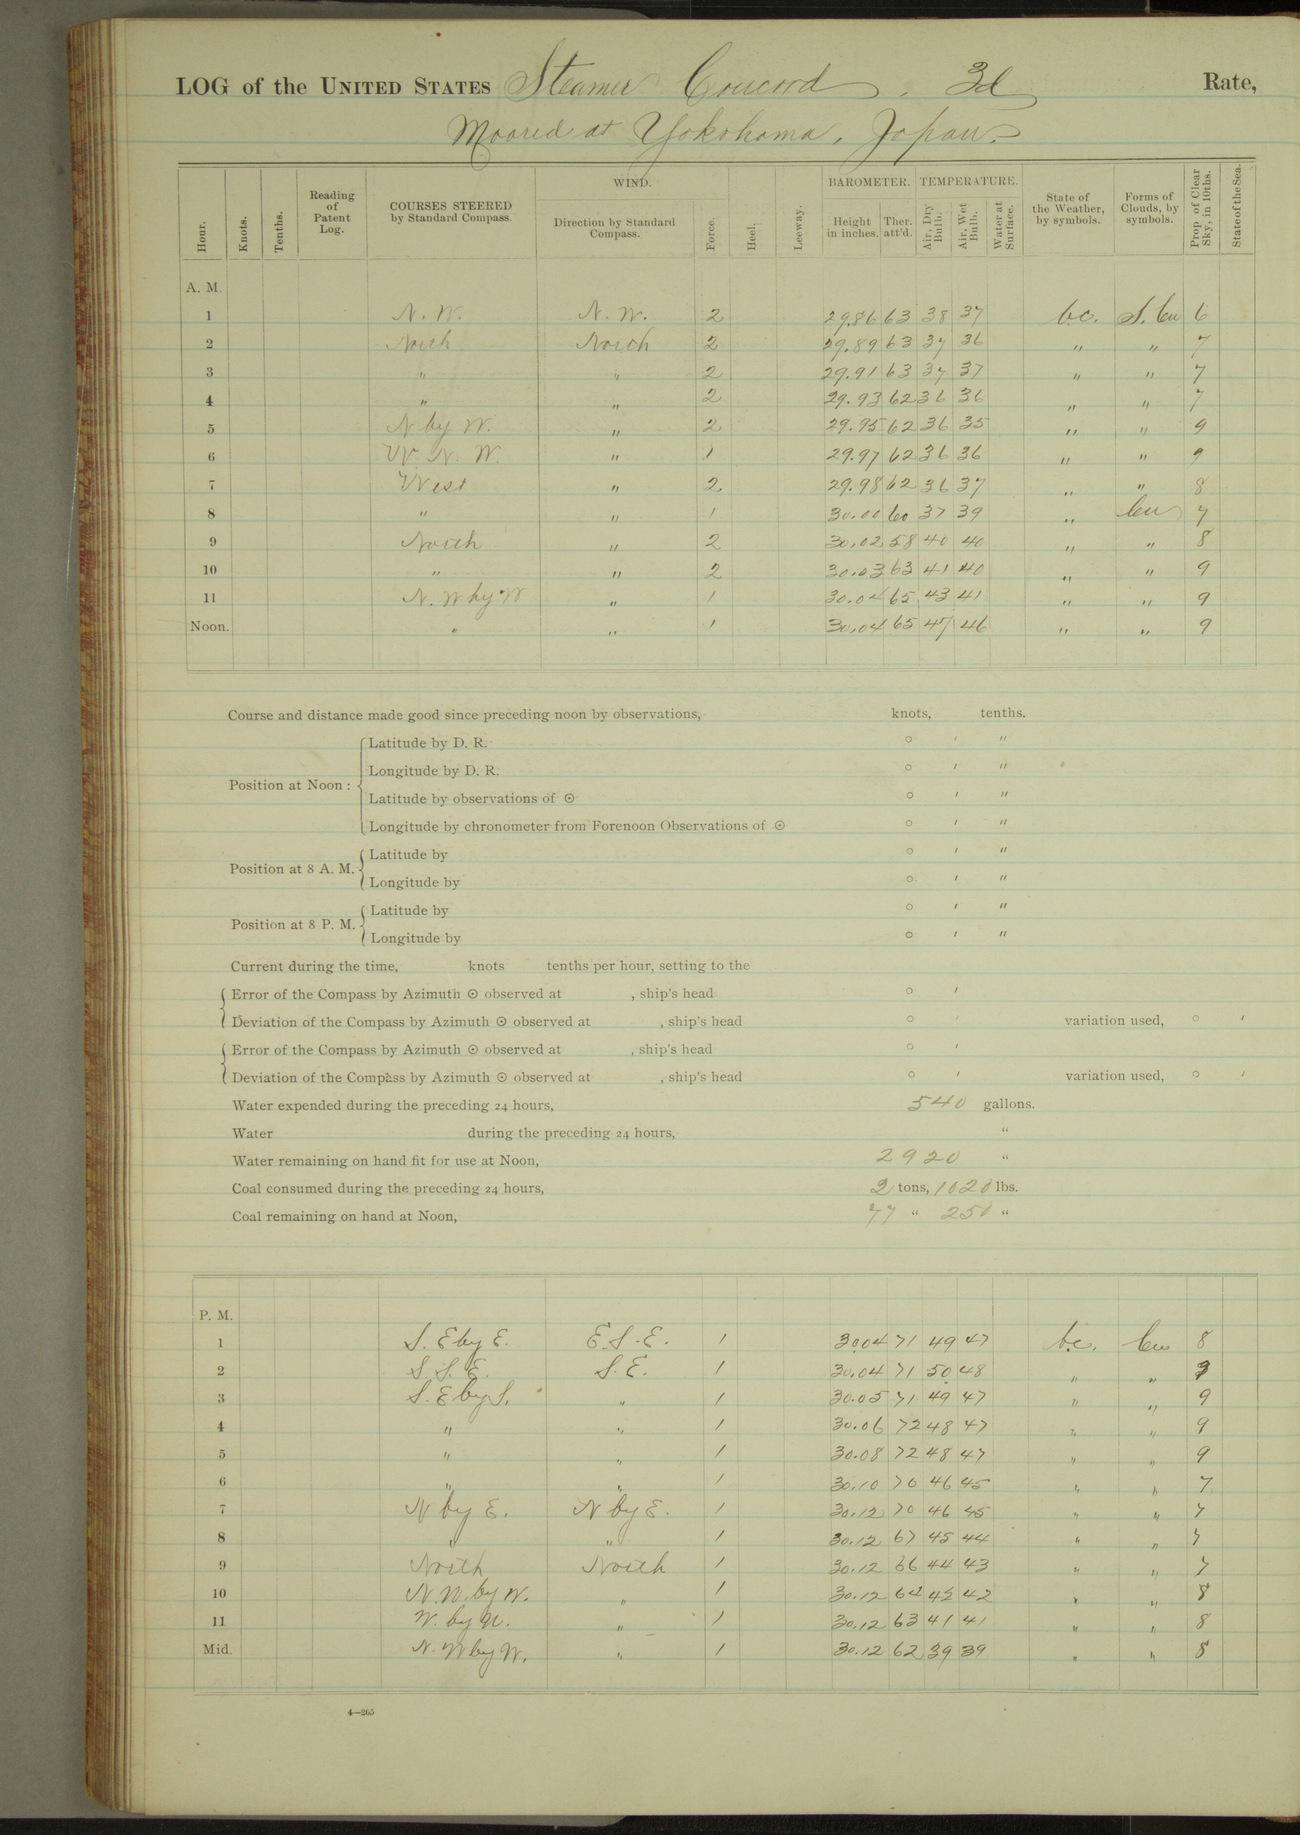 LOG of the UNITED STATES Steamer Concord, 3d Rate,
Moored at Yokohama, Japan.
Hour. Knots. Tenths. Reading of Patent Log. COURSES STEERED by Standard Compass. WIND. Direction by Standard Compass. Force. Heel. Leeway. BAROMETER. Height in inches. Ther. att'd. TEMPERATURE. Air, Dry Bulb. Air, Wet Bulb. Water at Surface. State of the Weather, by symbols. Forms of Clouds, by symbols. Prop. of Clear Sky, in 10ths. State of the Sea.
A. M.
1 N. W. N. W. 2 29.86 63 38 37 b.c. S. Cu 6
2 North North 2 29.89 63 37 36 " " 7
3 " " 2 29.91 63 37 37 " " 7
4 " " 2 29.93 62 36 36 " " 7
5 N by W. " 2 29.95 62 36 35 " " 9
6 W. N. W. " 1 29.97 62 36 36 " " 9
7 West " 2 29.98 62 36 37 " " 8
8 " " 1 30.00 60 37 39 " Cu 7
9 North " 2 30.02 58 40 40 " " 8
10 " " 2 30.03 63 41 40 " " 9
11 N. W by W " 1 30.04 65 43 41 " " 9
Noon. " " 1 30.04 65 47 46 " " 9
Course and distance made good since preceding noon by observations, knots, tenths.
Position at Noon :
Latitude by D. R. ° ' "
Longitude by D. R. ° ' "
Latitude by observations of ☉ ° ' "
Longitude by chronometer from Forenoon Observations of ☉ ° ' "
Position at 8 A. M.
Latitude by ° ' "
Longitude by ° ' "
Position at 8 P. M.
Latitude by ° ' "
Longitude by ° ' "
Current during the time, knots tenths per hour, setting to the
Error of the Compass by Azimuth ☉ observed at , ship's head ° '
Deviation of the Compass by Azimuth ☉ observed at , ship's head ° ' variation used, ° '
Error of the Compass by Azimuth ☉ observed at , ship's head ° '
Deviation of the Compass by Azimuth ☉ observed at , ship's head ° ' variation used, ° '
Water expended during the preceding 24 hours, 540 gallons.
Water during the preceding 24 hours, "
Water remaining on hand fit for use at Noon, 2920 "
Coal consumed during the preceding 24 hours, 2 tons, 1020 lbs.
Coal remaining on hand at Noon, 77 " 250 "
P. M.
1 S. E by E. E. S. E. 1 30.04 71 49 47 b.c. Cu 8
2 S. S. E. S. E. 1 30.04 71 50 48 " "
3 S. E by S. " 1 30.05 71 49 47 " " 9
4 " " 1 30.06 72 48 47 " " 9
5 " " 1 30.08 72 48 47 " " 9
6 " " 1 30.10 70 46 45 " " 7
7 N by E. N by E. 1 30.12 70 46 45 " " 7
8 " " 1 30.12 67 45 44 " " 7
9 North North 1 30.12 66 44 43 " " 7
10 N. W. by W. " 1 30.12 64 42 42 " " 8
11 W. by N. " 1 30.12 63 41 41 " " 8
Mid. N. W by W. " 1 30.12 62 39 39 " " 8
4—265